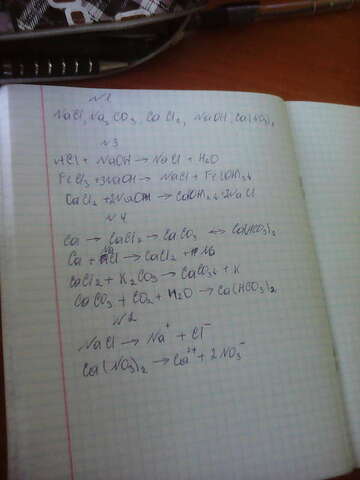 N1
NaCl, Na2CO3, CaCl2, NaOH, Ca(NO3)2
N3
HCl + NaOH → NaCl + H2O
FeCl3 + 3NaOH → NaCl + Fe(OH)3↓
CaCl2 + 2NaOH → Ca(OH)2↓ 2NaCl
N4
Ca → CaCl2 → CaCO3 ↔ Ca(HCO3)2
Ca + HCl → CaCl2 +
CaCl2 + K2CO3 → CaCO3↓ + K
CaCO3 + CO2 + H2O → Ca(HCO3)2
N2
NaCl → Na+ + Cl-
Ca(NO3)2 → Ca2+ + 2NO3-